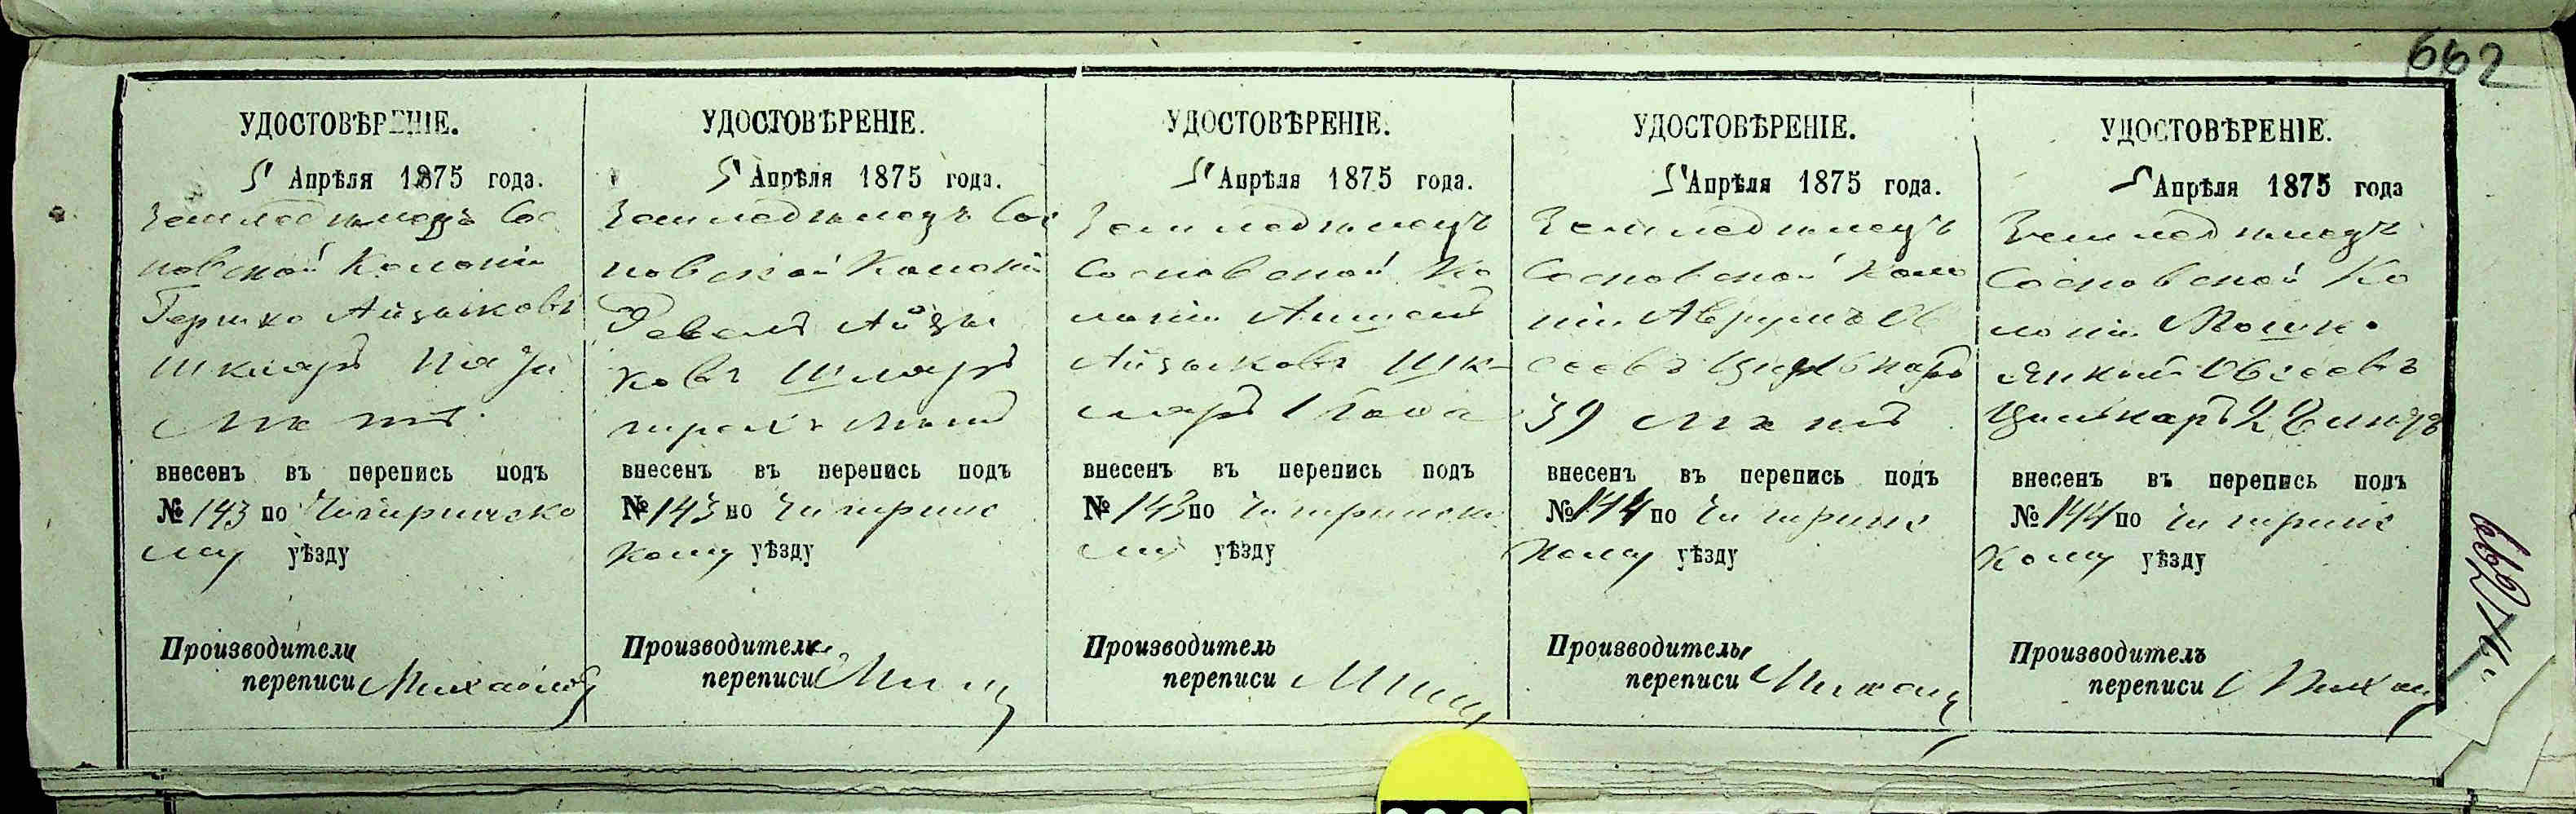 662
УДОСТОВѢРЕНІЕ.
5 Апрѣля 1875 года.
Земледѣлецъ Сос
новской Колоніи
Гершко Айзиковъ
Шкляръ
лѣтъ
внесенъ въ перепись подъ
№ 143 по Чигиринско
му уѣзду
Производитель
переписи Михайловъ
УДОСТОВѢРЕНІЕ.
5 Апрѣля 1875 года.
Земледѣлецъ Сос
новской Колоніи
Айзи
ковъ
трехъ лѣтъ
внесенъ въ перепись подъ
№ 143 по Чигиринс
кому уѣзду
Производитель
переписи
УДОСТОВѢРЕНІЕ.
5 Апрѣля 1875 года.
Земледѣлецъ
Сосновской Ко
лоніи Аншель
Айзиковъ Шк
ляръ 1 года
внесенъ въ перепись подъ
№ 143 по Чигиринско
му уѣзду
Производитель
переписи
УДОСТОВѢРЕНІЕ.
5 Апрѣля 1875 года.
Земледѣлецъ
Сосновской Коло
ніи Аврумъ Ов
сеевъ
39 лѣтъ
внесенъ въ перепись подъ
№ 144 по Чигиринс
кому уѣзду
Производитель
переписи
УДОСТОВѢРЕНІЕ.
5 Апрѣля 1875 года
Земледѣлецъ
Сосновской Ко
лоніи Мошко
Овсеевъ
внесенъ въ перепись подъ
№ 144 по Чигиринс
кому уѣзду
Производитель
переписи